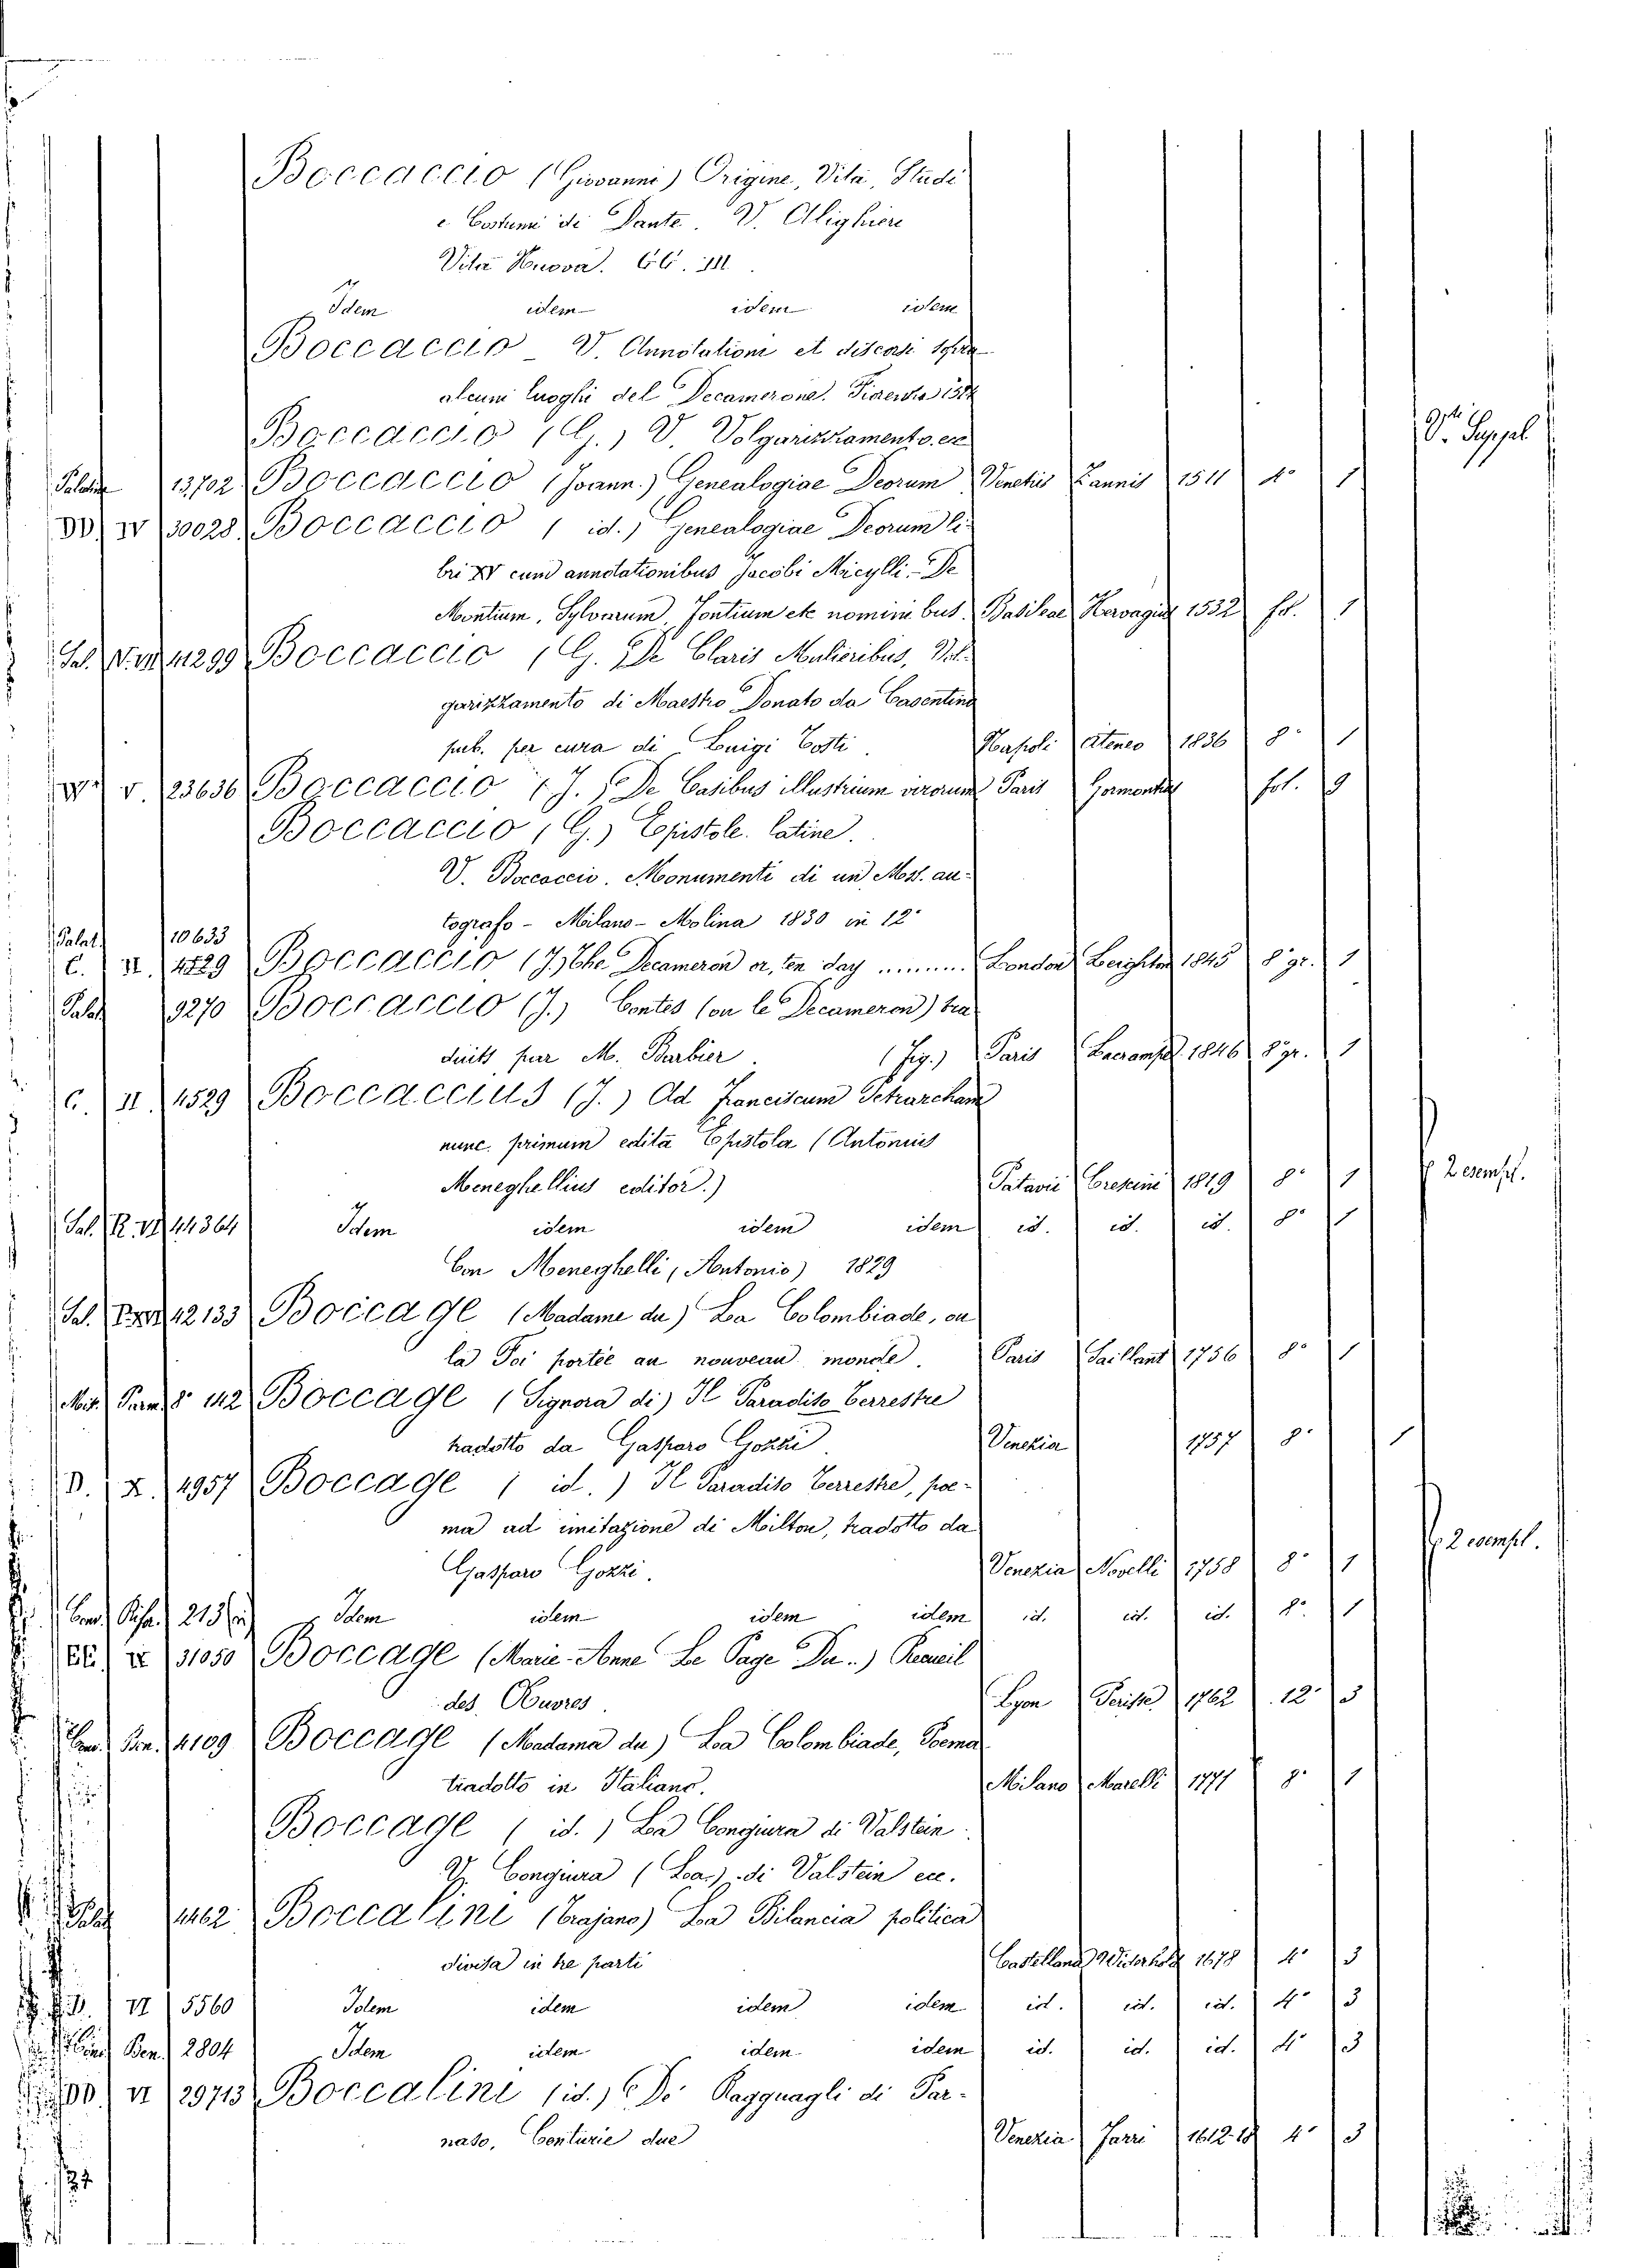 Boccaccio (Giovanni) Origine, Vita, Studi
e Costumi di Dante. V. Alighieri
Vita Nuova. GG. III.
Idem idem idem idem
Boccaccio _ V. Annotationi et discorsi sopra
alcuni luoghi del Decamerone. Firenze 1574
Boccaccio (G.) V. Volgarizzamento. ec V. Suppl
Palat 13702 Boccaccio (Joann.) Genealogiae Deorum Venetiis Zannis 1511 4º 1
DD IV 30028 Boccaccio ( id. ) Genealogiae Deorum li-
bri XV cum annotationibus Jacobi Micylli - De
Montium, Sylvarum, Fontium etc nominibus. Basileae Hervagius 1532 fol. 1
Sal. 41299 Boccaccio (G. De Claris Mulieribus, Vol-
garizzamento di Maestro Donato da Casentino
pub. per cura di Luigi Tosti. Napoli Ateneo 1836 8º 1
V. 23636 Boccaccio (J.) De Casibus illustrium virorum Paris Gormontii fol. 9
Boccaccio (G.) Epistole latine.
V. Boccaccio. Monumenti di un Mss. au-
tografo - Milano - Molina 1830 in 12º
Palat. 10633
C. II. 4529 Boccaccio (J.) The Decameron or, ten day London 1845 8 gr. 1
Palat 9270 Boccaccio (J.) Contes (ou le Decameron) tra-
duits par M. Barbier. (Fig.) Paris 1846 8 gr. 1
C. II. 4529 Boccaccius (J.) Ad Franciscum Petrarcham
nunc primum edita Epistola (Antonius
Meneghellius editor.) Patavii Crescini 1819 8º 1 2 esempl.
Sal. R. VI 44364 Idem idem idem idem id. id. id. 8º 1
Con Meneghelli (Antonio) 1829
Sal. 42133 Boccage (Madame du) La Colombiade, ou
la Foi portée au nouveau monde. Paris Saillant 1756 8º 1
Mis. Parm. 8º 142 Boccage (Signora di) Il Paradiso terrestre
tradotto da Gasparo Gozzi. Venezia 1757 8º 1
D. X. 4957 Boccage ( id. ) Il Paradiso Terrestre, poe-
ma ad imitazione di Milton, tradotto da
Gasparo Gozzi. Venezia Novelli 1758 8º 1 2 esempl.
213 Idem idem idem idem id. id. id. 8º 1
31050 Boccage (Marie-Anne Le Page Du.) Recueil
des Œuvres. Lyon Perisse 1762 12º 3
4109 Boccage (Madama du) La Colombiade, Poema
tradotto in Italiano. Milano Marelli 1771 8º 1
Boccage ( id. ) La Congiura di Valstein.
V. Congiura (La) di Valstein ecc.
Palat 4462 Boccalini (Trajano) La Bilancia politica
divisa in tre parti Castellana Widerhold 1678 4º 3
VI 5560 Idem idem idem idem id. id. id. 4º 3
Ben. 2804 Idem idem idem idem id. id. id. 4º 3
VI 29713 Boccalini (id.) De' Ragguagli di Par-
naso, Centurie due Venezia Farri 1612-18 4º 3